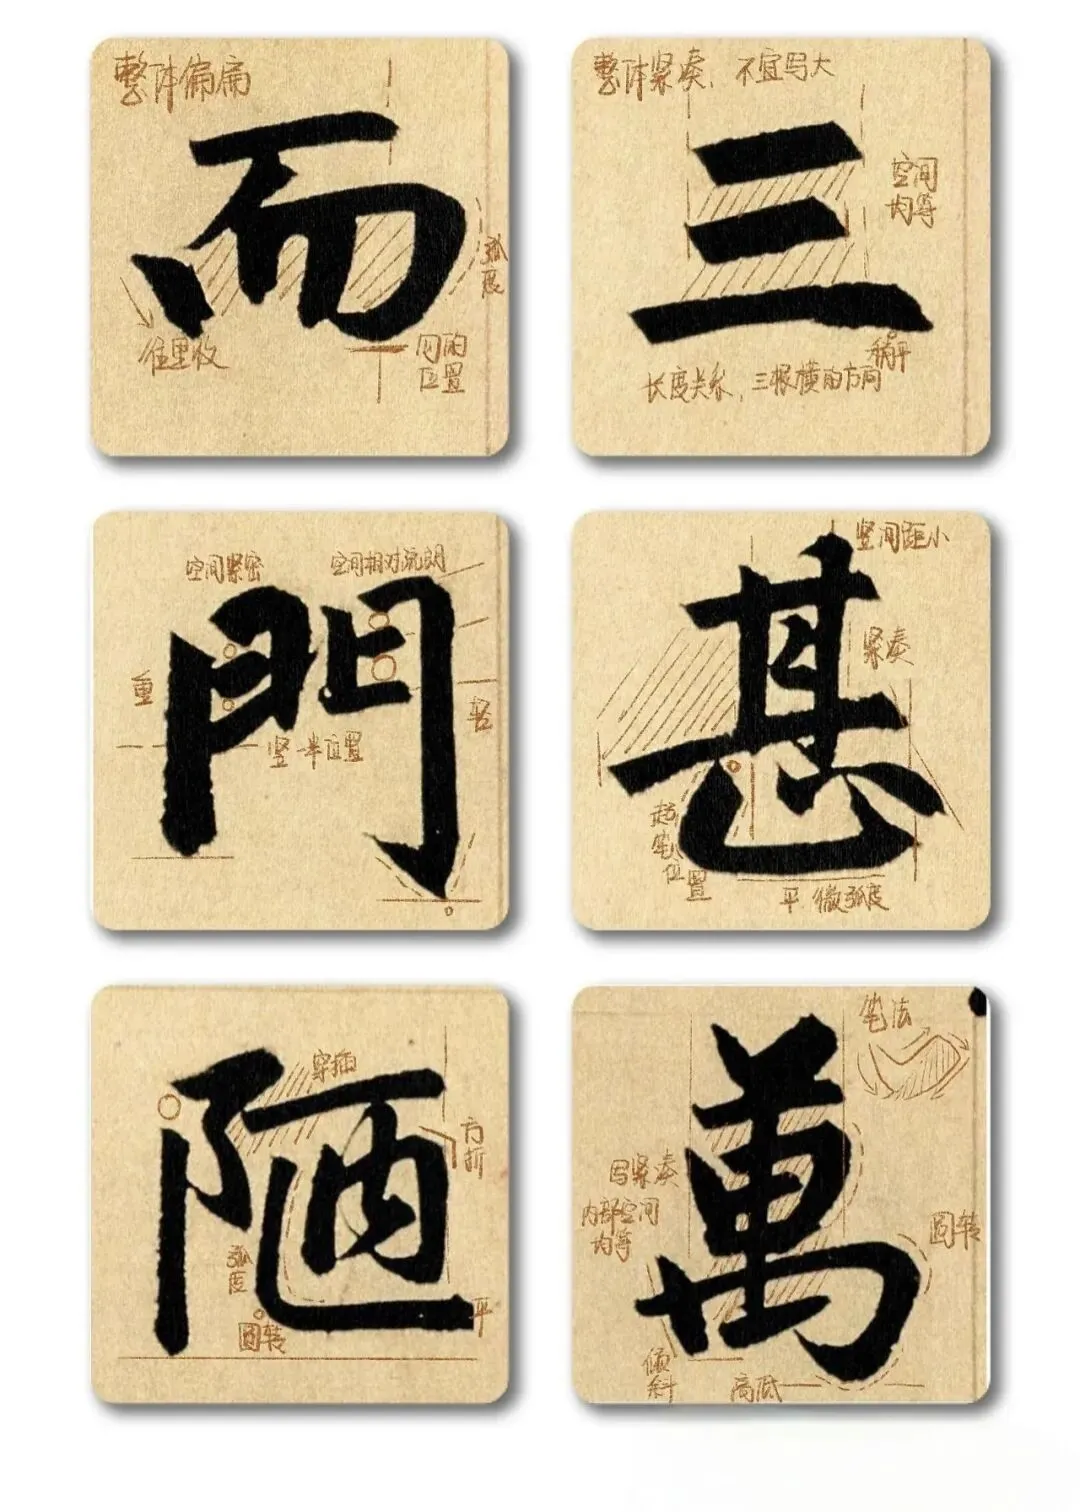 整体偏扁
而
弧度
往里收
勾的
位置
整体紧凑,不宜写大
三
空间
均等
稍平
长度关系,三根横的方向
空间紧密
空间相对疏朗
門
重
轻
竖一半位置
竖间距小
甚
紧凑
起
笔
位
置
平 微弧度
穿插
陋
方
折
弧
度
圆转
平
笔法
萬
写紧凑
内部空间
均等
圆转
倾
斜
高低